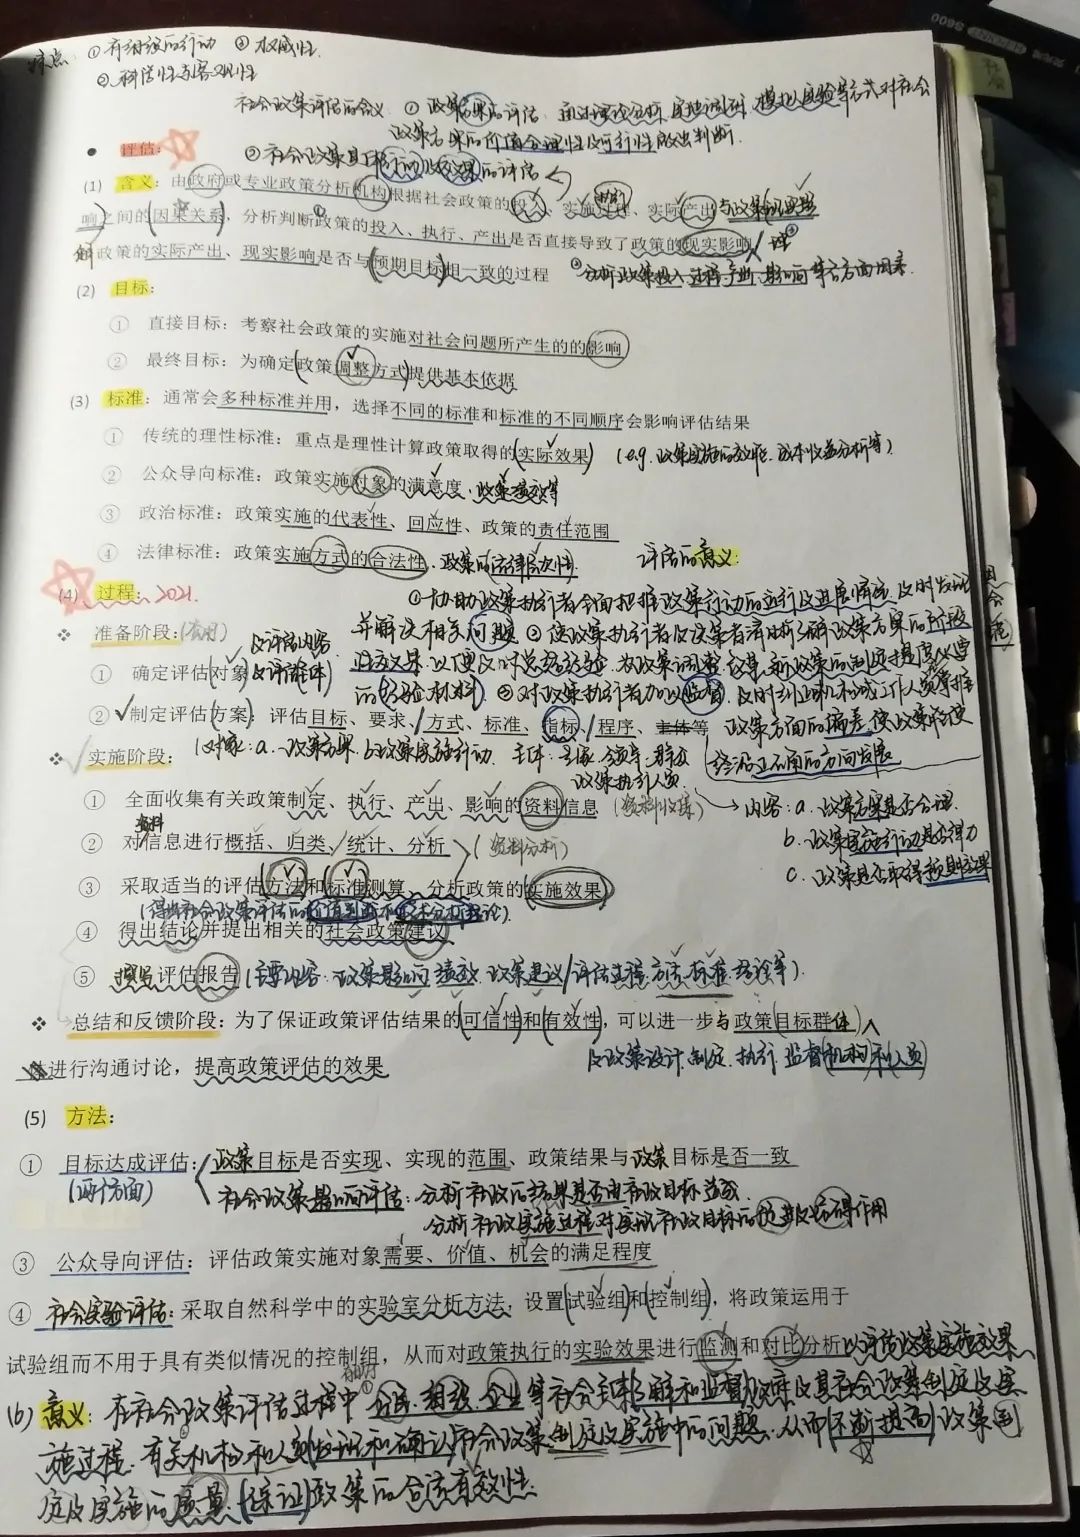 特点：①有组织的行动 ③权威性.
②科学性与客观性
社会政策评估的含义 ① 政策后果的评估 通过理论分析、实地调研、模拟实验等方式对社会
政策方案的价值合理性及可行性做出判断.
● 评估: ②社会政策具体行动及效果的评估
(1) 含义：由政府或专业政策分析机构根据社会政策的投入、实施过程、实际产出与政策的现实影
响之间的因果关系，分析判断政策的投入、执行、产出是否直接导致了政策的现实影响
政策的实际产出、现实影响是否与预期目标相一致的过程 分析政策投入、过程、产出、影响等各方面因素.
(2) 目标：
① 直接目标：考察社会政策的实施对社会问题所产生的的影响
② 最终目标：为确定政策调整方式提供基本依据
(3) 标准：通常会多种标准并用，选择不同的标准和标准的不同顺序会影响评估结果
① 传统的理性标准：重点是理性计算政策取得的实际效果 (e.g. 政策实施的效率、成本收益分析等)
② 公众导向标准：政策实施对象的满意度、政策绩效等
③ 政治标准：政策实施的代表性、回应性、政策的责任范围
④ 法律标准：政策实施方式的合法性、政策的法律层次性. 评估的意义:
(4) 过程：2021.
①协助政策执行者全面把握政策行动的运行及进展情况,及时发现
❖ 准备阶段:(备用) 并解决相关问题 ②使政策执行者及决策者清晰了解政策方案的阶段
① 确定评估对象 及评估内容 及评估主体
性效果,以便及时总结经验,为政策调整
的经验材料 ③对政策执行者加以监督,及时纠正机构或工作人员
② √制定评估方案：评估目标、要求、方式、标准、指标、程序、主体等 政策方面的偏差,使政策能够
❖ 实施阶段： (对象：a.政策方案 b.政策实施行动 主体：专家、领导、群众 政策执行人员
沿正确的方向发展
① 全面收集有关政策制定、执行、产出、影响的资料信息 (资料收集) → 内容：a.政策方案是否合理.
资料
② 对信息进行概括、归类、统计、分析 (资料分析) b.政策实施行动是否得力
③ 采取适当的评估方法和标准测算、分析政策的实施效果 c.政策是否取得预期效果
(得出社会政策评估的价值判断和技术分析结论).
④ 得出结论并提出相关的社会政策建议
⑤ 撰写评估报告 (主要内容：政策影响、绩效、政策建议/评估过程、方法、标准、结论等).
❖ 总结和反馈阶段：为了保证政策评估结果的可信性和有效性，可以进一步与政策目标群体
及政策设计、制定、执行、监督机构和人员
进行沟通讨论，提高政策评估的效果
(5) 方法：
① 目标达成评估: 政策目标是否实现、实现的范围、政策结果与政策目标是否一致
(两个方面) 社会政策影响评估：分析社政的结果是否由社政目标造成.
分析社政实施过程对实现社政目标的促进及妨碍作用
③ 公众导向评估：评估政策实施对象需要、价值、机会的满足程度
④ 社会实验评估: 采取自然科学中的实验室分析方法，设置试验组和控制组，将政策运用于
试验组而不用于具有类似情况的控制组，从而对政策执行的实验效果进行监测和对比分析以评估政策实施效果
(6) 意义: 在社会政策评估过程中 有助于① 公民、组织、企业等社会主体了解和监督政府及其社会政策制定及实
施过程.有关机构和人员发现和确认社会政策制定及实施中的问题.从而不断提高政策制
定及实施的质量,保证政策的合法有效性.